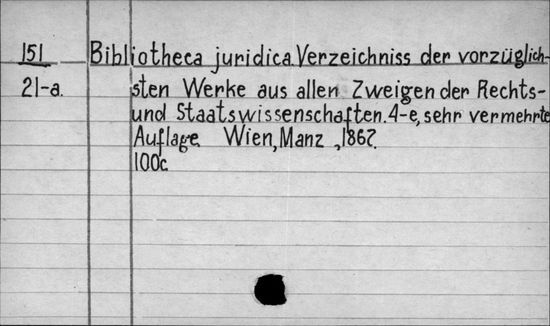 151 Bibliotheca juridica. Verzeichniss der vorzüglich-
21-a. sten Werke aus allen Zweigen der Rechts-
und Staatswissenschaften. 4-e, sehr vermehrte
Auflage. Wien, Manz, 1867.
100c.